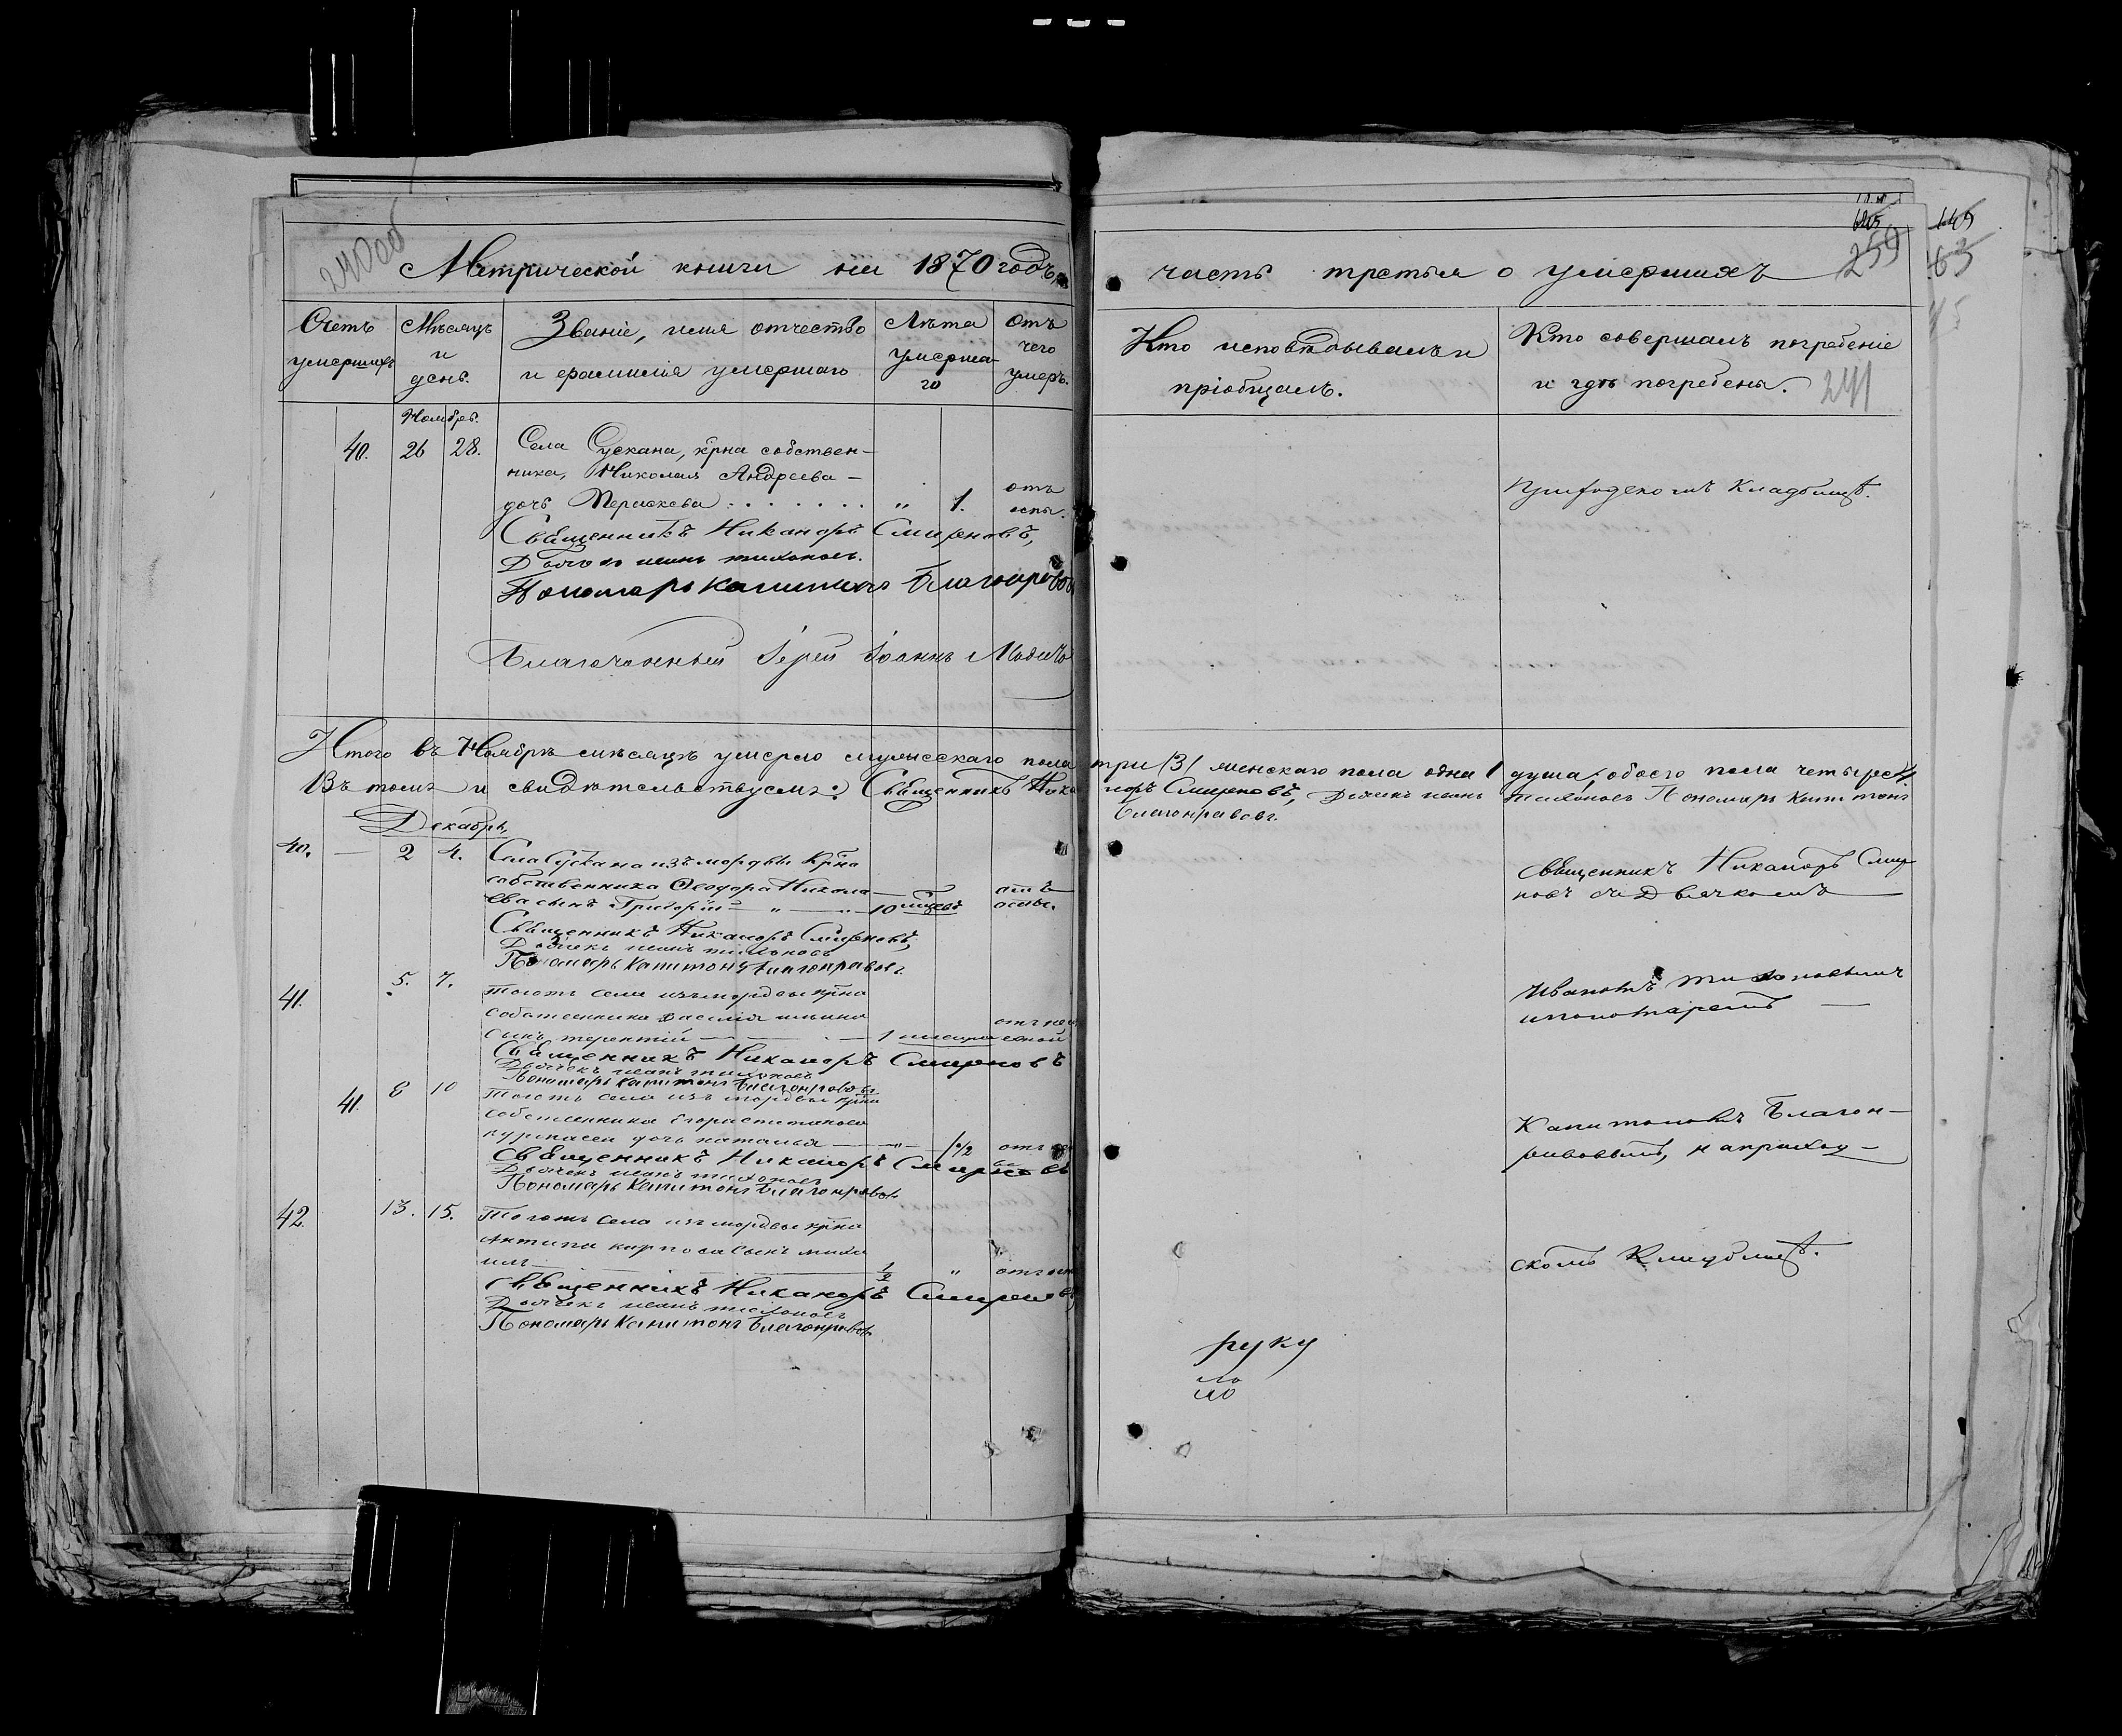 Метрической книги на 1870 годъ,
часть третья о умершихъ
259
63
Счетъ умершихъ
Мѣсяцъ и день.
Званіе, имя отчество
и фамилія умершаго
Лѣта умерша-
го
Отъ чего умеръ.
Кто исповѣдывалъ и
пріобщалъ.
Кто совершалъ погребеніе
и гдѣ погребены.
241
Ноябрь.
40. 26 28. Села Сускана, крѣна собствен-
ника, Николая Андреева -
дочь Параскева " 1. отъ оспы.
Приходскомъ Кладбищѣ.
Священникъ Никаноръ Смирновъ,
Дьячекъ Иванъ Тихоновъ.
Пономарь Капитонъ Благонравовъ
Благочинный Іерей Іоаннъ
Итого въ Ноябрѣ мѣсяцѣ умерло мужескаго пола три /3/ женскаго пола одна 1 душа, обоего пола четыре
Въ томъ и свидѣтельствуемъ: Священникъ Никаноръ Смирновъ, Дьячекъ Иванъ Тихоновъ Пономарь Капитонъ
Благонравовъ.
Декабрь,
40. — 2 4. Села Сускана изъ мордвы крѣна
собственника Ѳеодора Никола-
ева сынъ Григорій — " — 10 мѣсяцъ отъ оспы.
Священникъ Никаноръ Смир
новъ съ Дьячкомъ
Священникъ Никаноръ Смирновъ,
Дьячекъ Иванъ Тихоновъ
Пономарь Капитонъ Благонравовъ.
41. 5. 7. Тогожъ села изъ мордвы крѣна
собственника Василія Ильина
сынъ Терентій — 1
Иваномъ Тихоновымъ
и пономаремъ —
Священникъ Никаноръ Смирновъ
Дьячекъ Иванъ Тихоновъ
Пономарь Капитонъ Благонравовъ
41. 8 10 Тогожъ села изъ мордвы крѣна
собственника
дочь Наталья — " — 1 1/2 отъ
Капитономъ Благон-
равовымъ, на приход-
Священникъ Никаноръ Смирновъ
Дьячекъ Иванъ Тихоновъ
Пономарь Капитонъ Благонравовъ
42. 13. 15. Тогожъ села изъ мордвы крѣна
Антипа Карпова сынъ Миха
илъ — 1/2 " отъ
скомъ Кладбищѣ.
Священникъ Никаноръ Смирновъ,
Дьячекъ Иванъ Тихоновъ
Пономарь Капитонъ Благонравовъ
руку